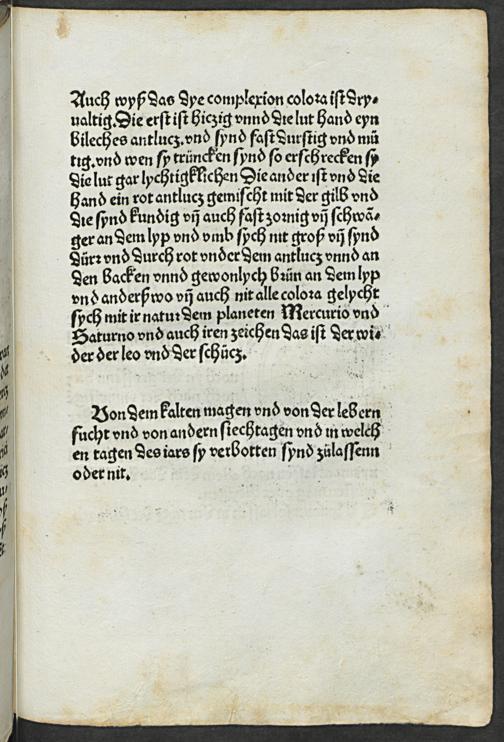 Auch wyß das dye complexion colora ist dry⸗
ualtig. Die erst ist hiczig vnnd die lut hand eyn
bileches antlucz. vnd synd fast durstig vnd mü
tig. vnd wen sy trüncken synd so erschrecken sy
die lut gar lychtigklichen Die ander ist vnd die
hand ein rot antlucz gemischt mit der gilb vnd
die synd kundig vñ auch fast zornig vñ schwä⸗
ger an dem lyp vnd vmb sych nit groß vñ synd
dürr vnd durch rot vnder dem antlucz vnnd an
den backen vnnd gewonlych brün an dem lyp
vnd anderßwo vñ auch nit alle colora gelycht
sych mit ir natur dem planeten Mercurio vnd
Saturno vnd auch iren zeichen das ist der wi⸗
der der leo vnd der schücz.
Von dem kalten magen vnd von der lebern
sucht vnd von andern siechtagen vnd in welch
en tagen des iars sy verbotten synd zülassenn
oder nit.